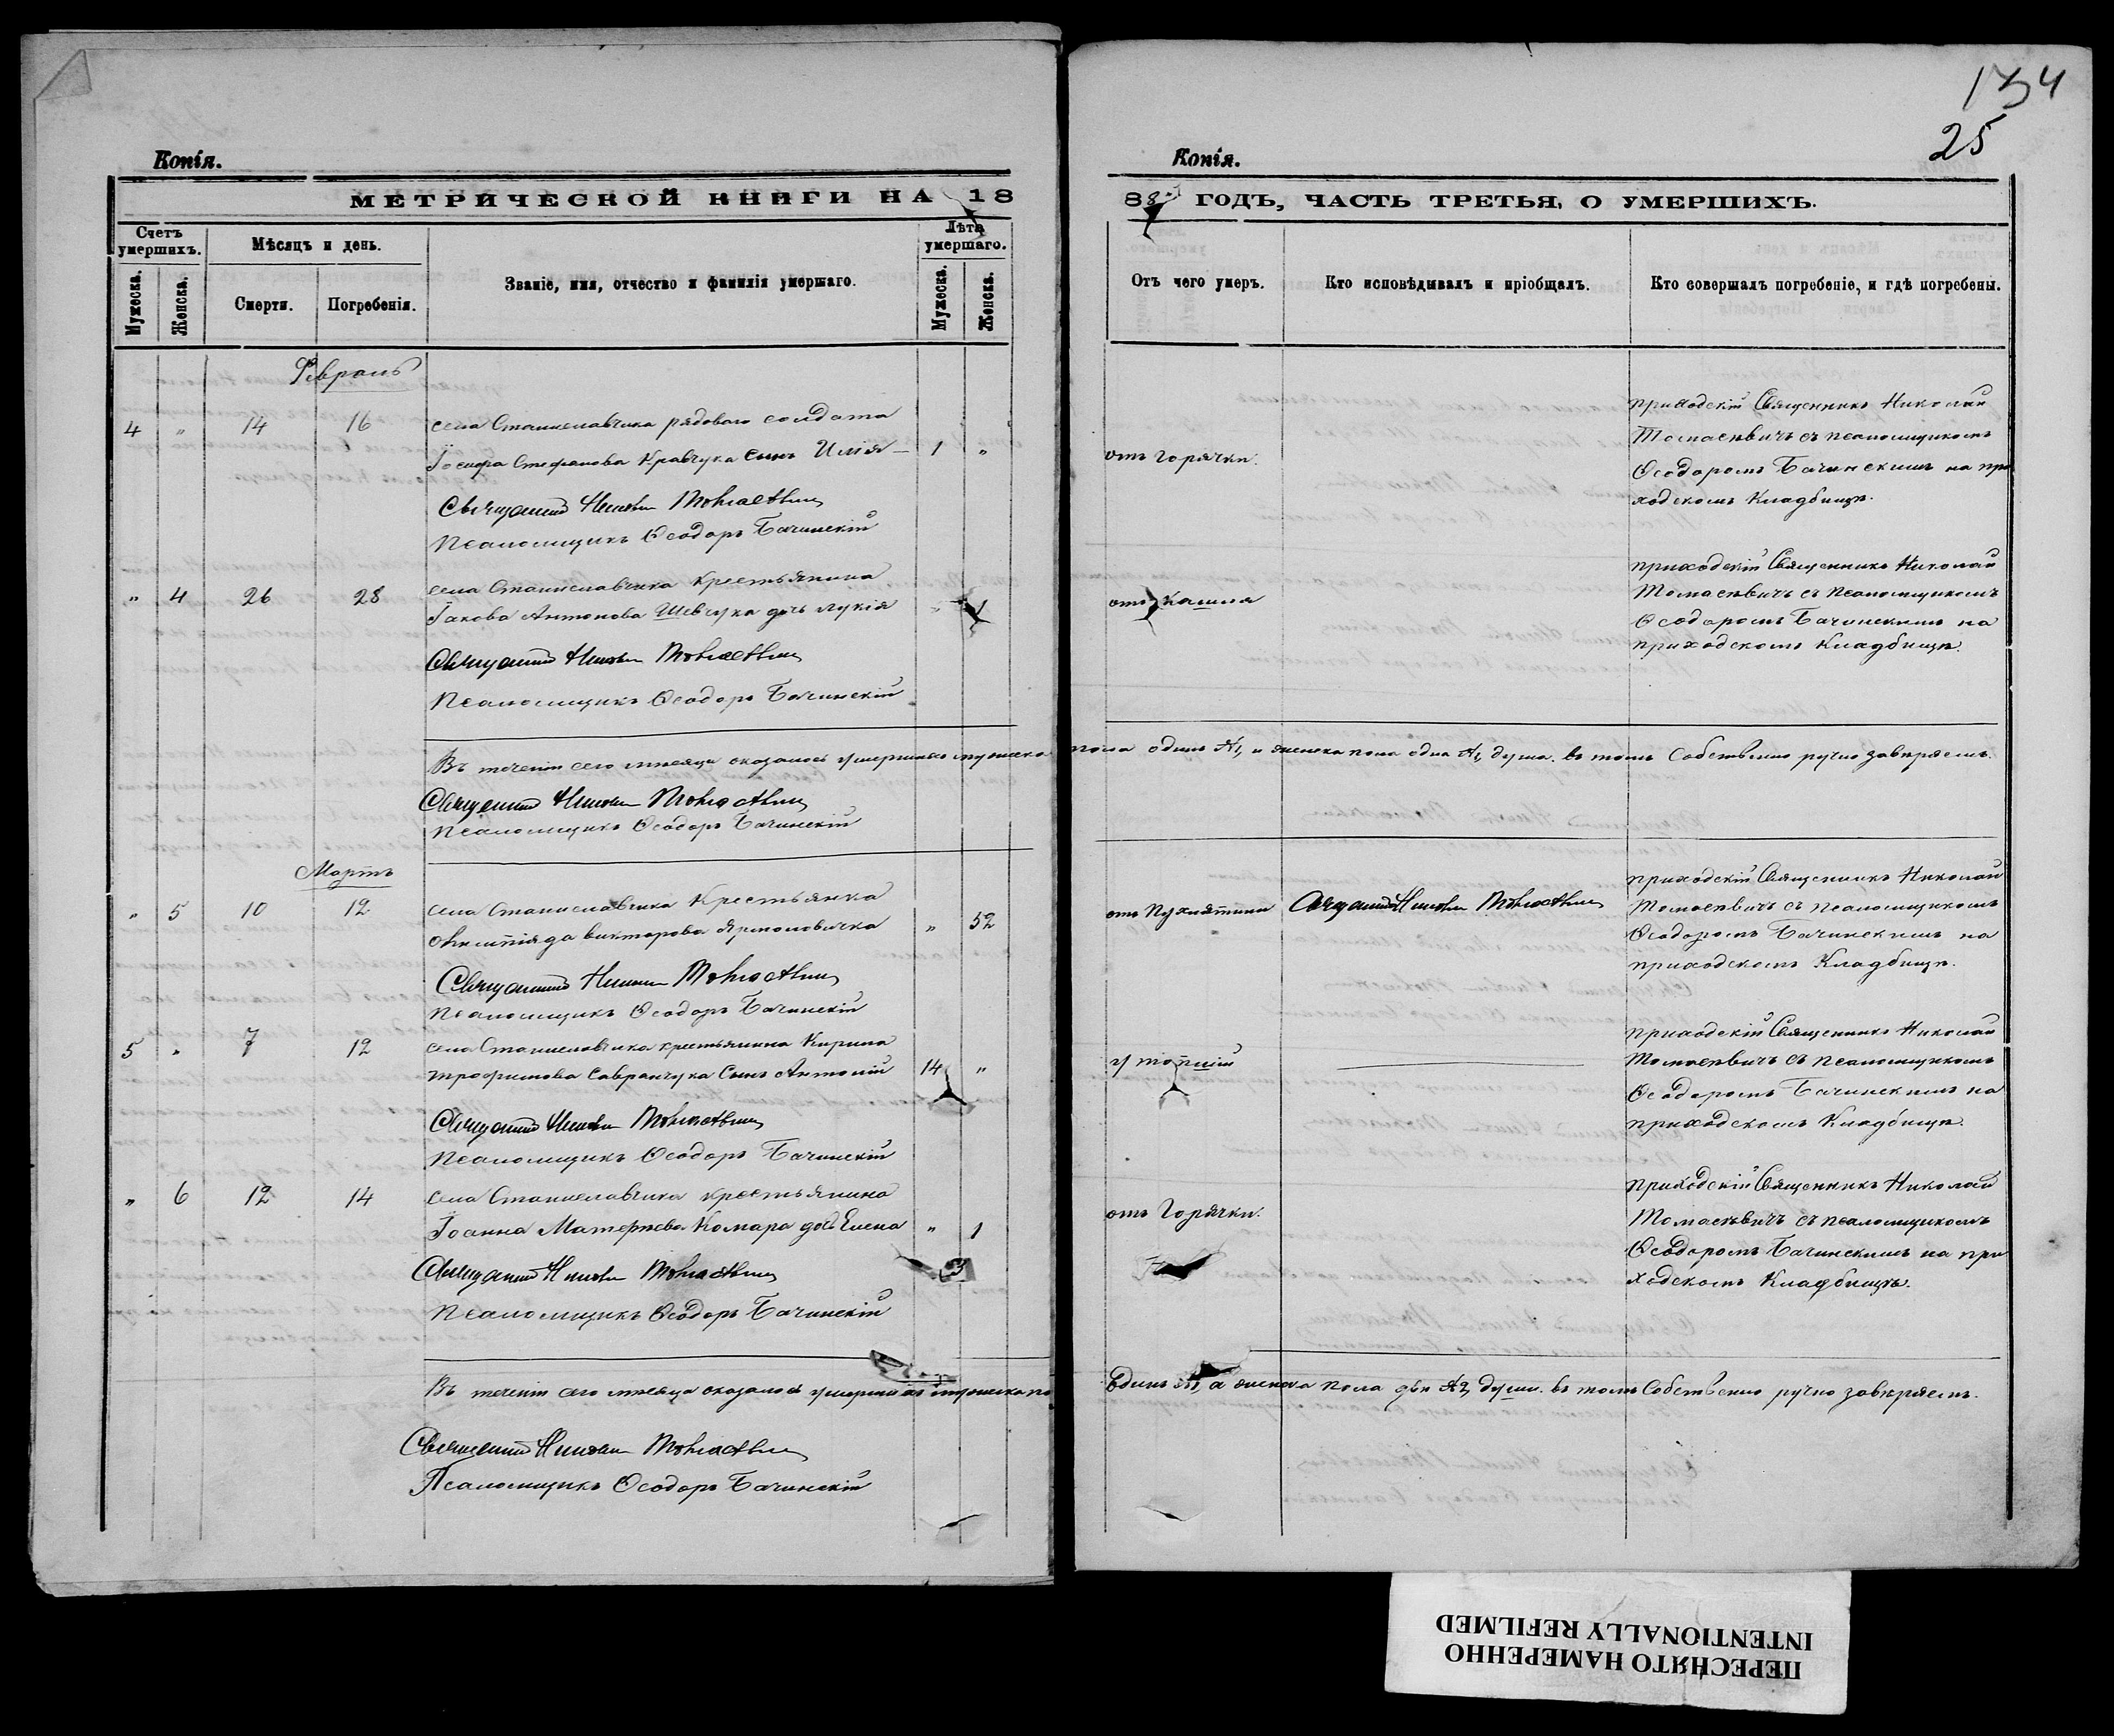 134
25
Копія.
Копія.
МЕТРИЧЕСКОЙ КНИГИ НА 18
88 ГОДЪ, ЧАСТЬ ТРЕТЬЯ, О УМЕРШИХЪ.
Счетъ умершихъ.
Мѣсяцъ и день.
Званіе, имя, отчество и фамилія умершаго.
Лѣта умершаго.
Мужеска.
Женска.
Смерти.
Погребенія.
Мужеска.
Женска.
Отъ чего умеръ.
Кто исповѣдывалъ и пріобщалъ.
Кто совершалъ погребеніе, и гдѣ погребены.
Февраль
4 " 14 16 села Станиславчика рядового солдата
Іосифа Стефанова Кравчука сынъ Илія — 1 "
отъ горячки.
приходскій Священникъ Николай
Томасевичъ съ псаломщикомъ
Ѳеодоромъ Бачинскимъ на при
ходскомъ Кладбищѣ.
Священникъ Николай Томасевичъ
Псаломщикъ Ѳеодоръ Бачинскій
" 4 26 28 села Станиславчика крестьянина
Іакова Антонова Шевчука дочь Лукія " 1
отъ кашля
приходскій Священникъ Николай
Томасевичъ съ псаломщикомъ
Ѳеодоромъ Бачинскимъ на
приходскомъ Кладбищѣ.
Священникъ Николай Томасевичъ
Псаломщикъ Ѳеодоръ Бачинскій
Въ теченіи сего мѣсяца оказалось умершихъ мужеска пола одинъ №1, и женска пола одна №1, душа. въ томъ Собственно ручно завѣряемъ.
Священникъ Николай Томасевичъ
Псаломщикъ Ѳеодоръ Бачинскій
Мартъ
" 5 10 12 села Станиславчика Крестьянка
Викторова Ярмоловичка " 52
отъ Пухлятини
Священникъ Николай Томасевичъ
приходскій Священникъ Николай
Томасевичъ съ псаломщикомъ
Ѳеодоромъ Бачинскимъ на
приходскомъ Кладбищѣ.
Священникъ Николай Томасевичъ
Псаломщикъ Ѳеодоръ Бачинскій
5 " 7 12 села Станиславчика крестьянина Кирила
Трофимова Савранчука Сынъ Антоній 14 "
утопшій
приходскій Священникъ Николай
Томасевичъ съ псаломщикомъ
Ѳеодоромъ Бачинскимъ на
приходскомъ Кладбищѣ.
Священникъ Николай Томасевичъ
Псаломщикъ Ѳеодоръ Бачинскій
" 6 12 14 села Станиславчика крестьянина
Іоанна Матѳѣева Комара дочь Елена " 1
отъ Горячки.
приходскій Священникъ Николай
Томасевичъ съ псаломщикомъ
Ѳеодоромъ Бачинскимъ на при
ходскомъ Кладбищѣ.
Священникъ Николай Томасевичъ
Псаломщикъ Ѳеодоръ Бачинскій
Въ теченіи сего мѣсяца оказалось умершихъ мужеска по одинъ №1, а женска пола двѣ №2, души. въ томъ Собственно ручно завѣряемъ.
Священникъ Николай Томасевичъ
Псаломщикъ Ѳеодоръ Бачинскій
ПЕРЕСНЯТО НАМЕРЕННО
INTENTIONALLY REFILMED